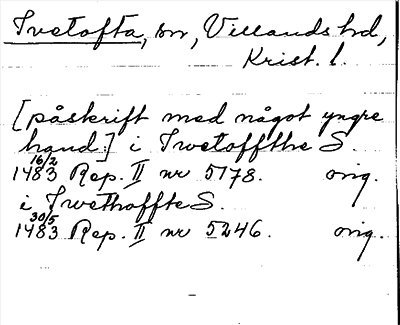 Ivetofta, sn, Villands hd,
Krist. l.
[påskrift med något yngre
hand:] i Iwetoffthe S.
16/2
1483 Rep. II nr 5178. orig.
i Iwethoffte S.
30/5
1483 Rep. II nr 5246. orig.